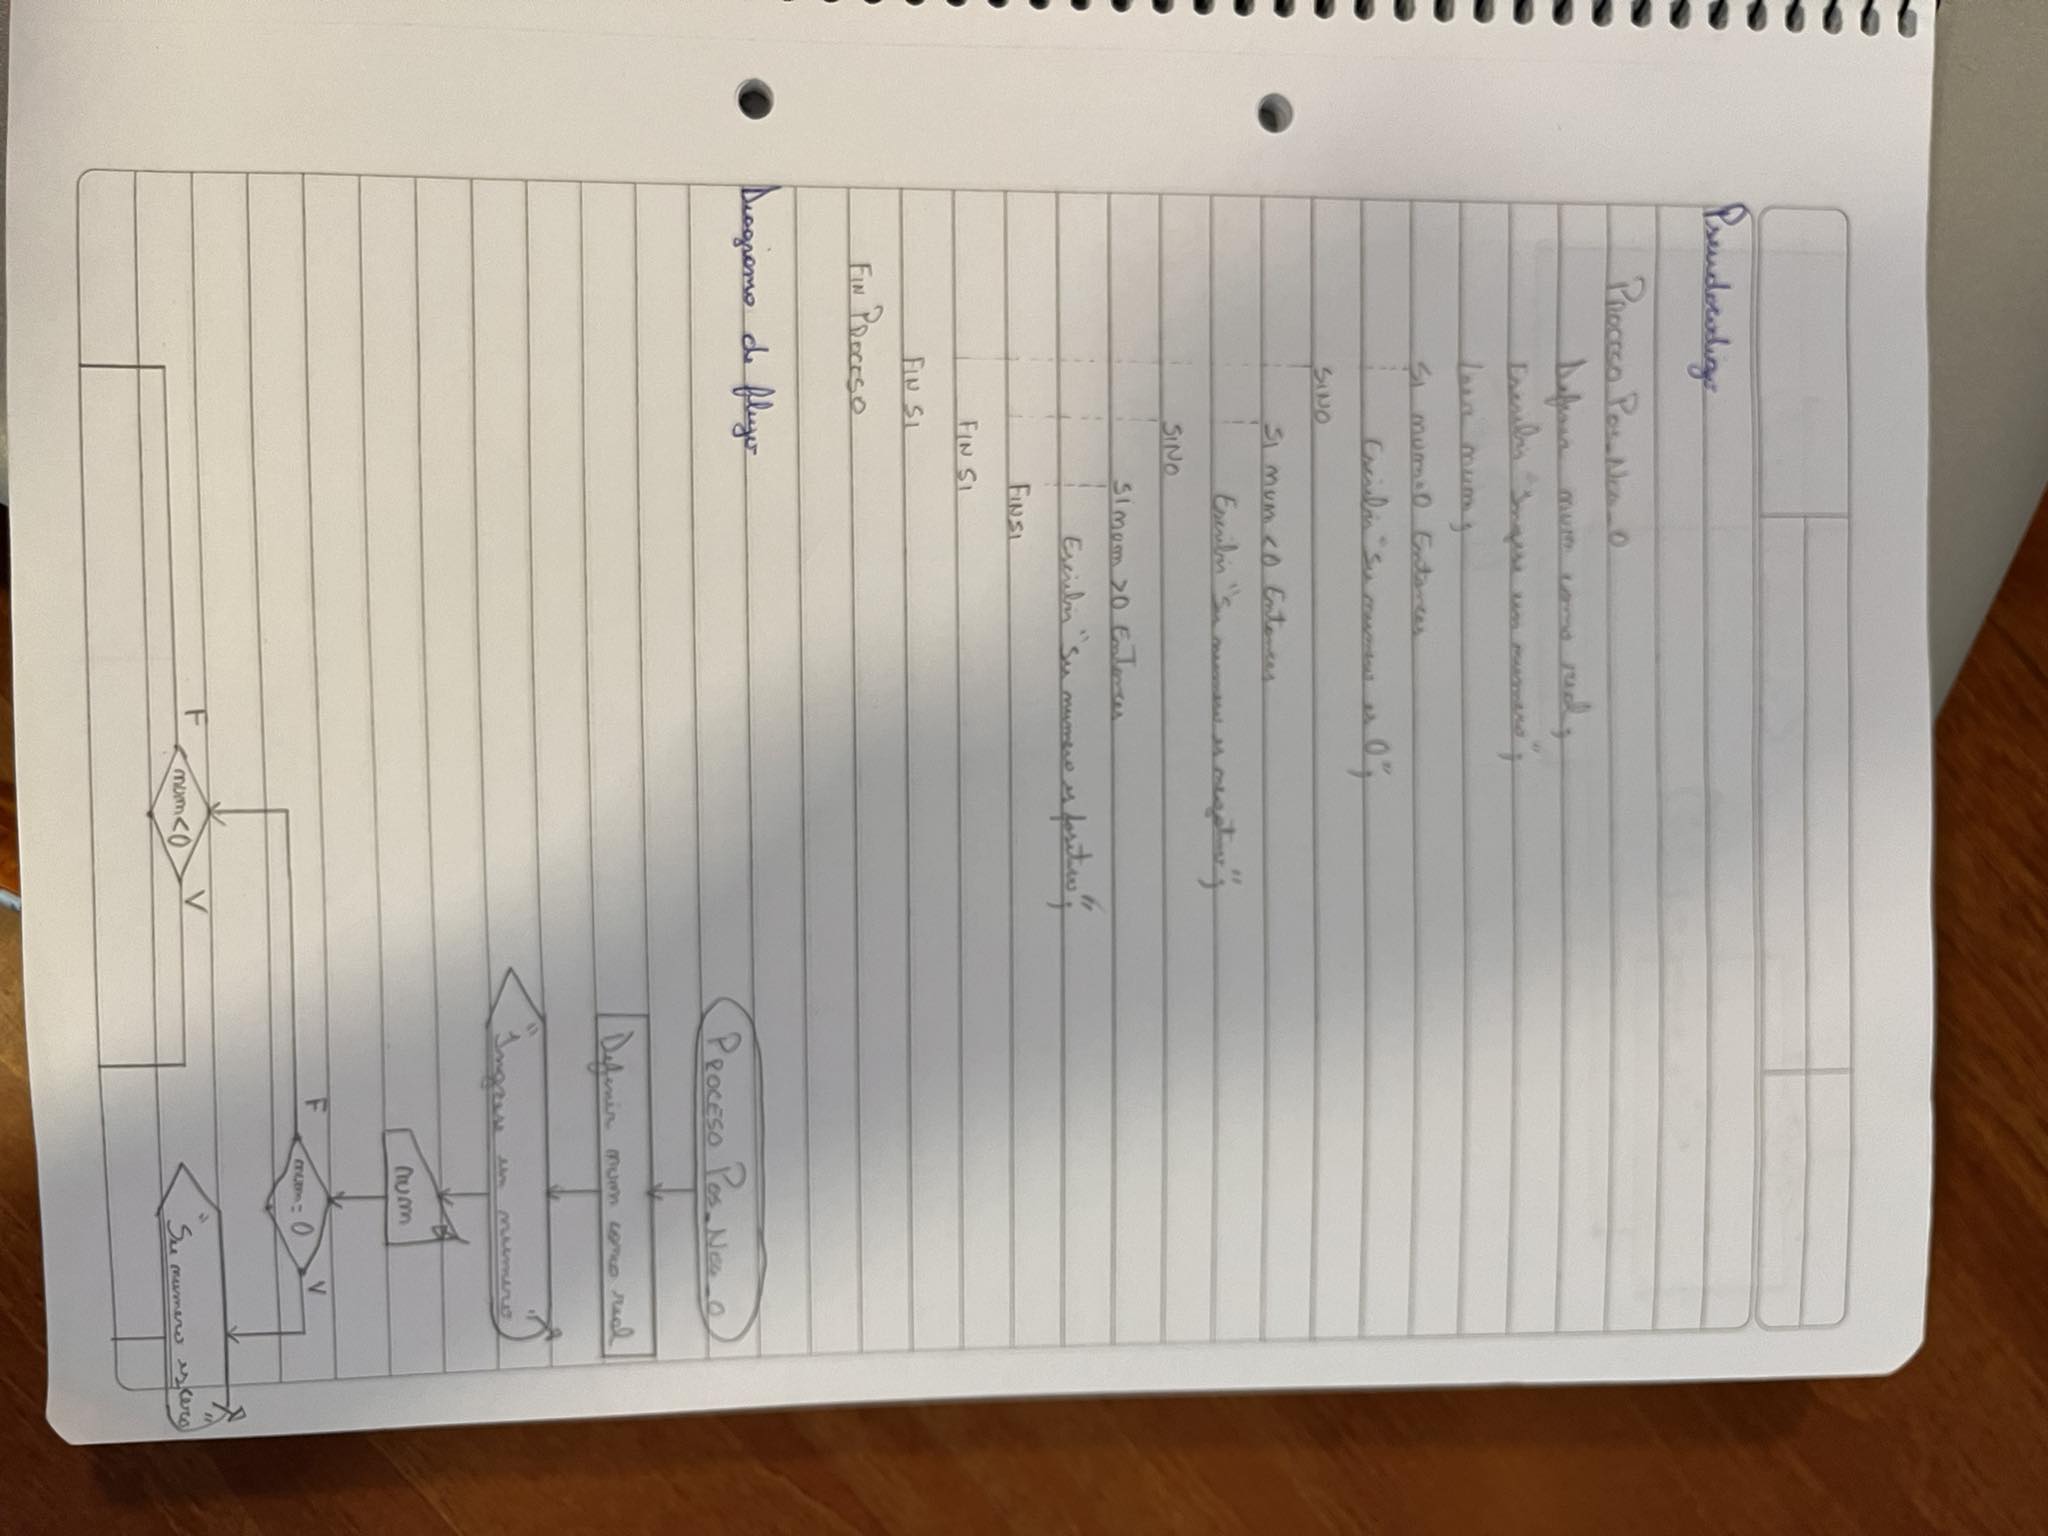 Pseudocodigo
Proceso Pos_Neg_0
Definir num como real;
Escribir "Ingrese un numero";
Leer num;
SI num=0 Entonces
Escribir "Su numero es 0";
SINO
SI num <0 Entonces
Escribir "Su numero es negativo";
SINO
SI num >0 Entonces
Escribir "Su numero es positivo";
FIN SI
FIN SI
FIN SI
FIN PROCESO
Diagrama de flujo
PROCESO Pos_Neg_0
Definir num como real
"Ingrese un numero"
num
F num=0 V
F num<0 V
"Su numero es cero"